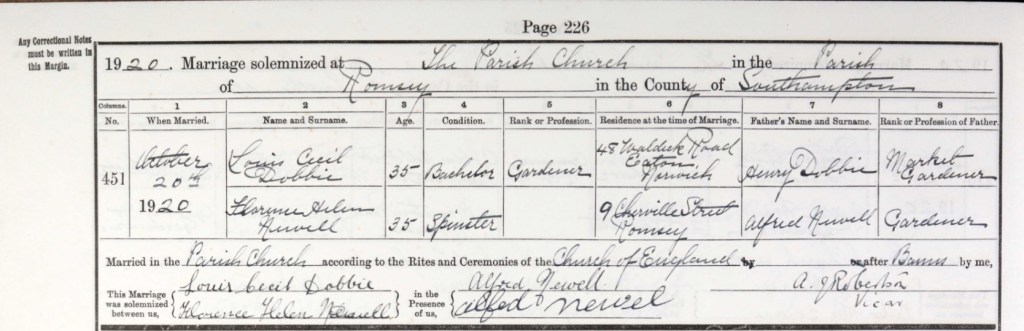 Page 226
Any Correctional Notes
must be written in
this Margin.
1920. Marriage solemnized at The Parish Church in the Parish
of Romsey in the County of Southampton
Columns. 1 2 3 4 5 6 7 8
No. When Married. Name and Surname. Age. Condition. Rank or Profession. Residence at the time of Marriage. Father's Name and Surname. Rank or Profession of Father.
451 October 20th 1920
Louis Cecil Dobbie 35 Bachelor Gardener 48 Waldick Road Eaton Norwich Henry Dobbie Market Gardener
Florence Helen Newell 35 Spinster 9 Cherville Street Romsey Alfred Newell Gardener
Married in the Parish Church according to the Rites and Ceremonies of the Church of England by or after Banns by me,
This Marriage was solemnized between us, Louis Cecil Dobbie in the Presence of us, Alfred Newell A. J Robertson
Florence Helen Newell Alfed Newel Vicar